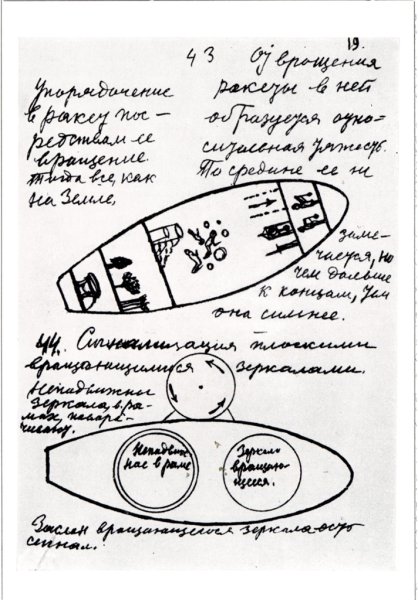 19.
43 От вращения
ракеты в ней
образуется отно-
сительная тяжесть.
По средине ее не
заме-
чается, но
чем дальше
к концам, тем
она сильнее.
Упорядочение
в ракете пос-
редством ее
вращение.
Тогда все, как
на Земле.
44. Сигнализация плоскими
вращающимися зеркалами.
Неподвижны
зеркала, в ра-
мах,
Неподвиж
в раме
Зеркало
вращаю-
щееся.
Заслон вращающегося зеркала есть
сигнал.